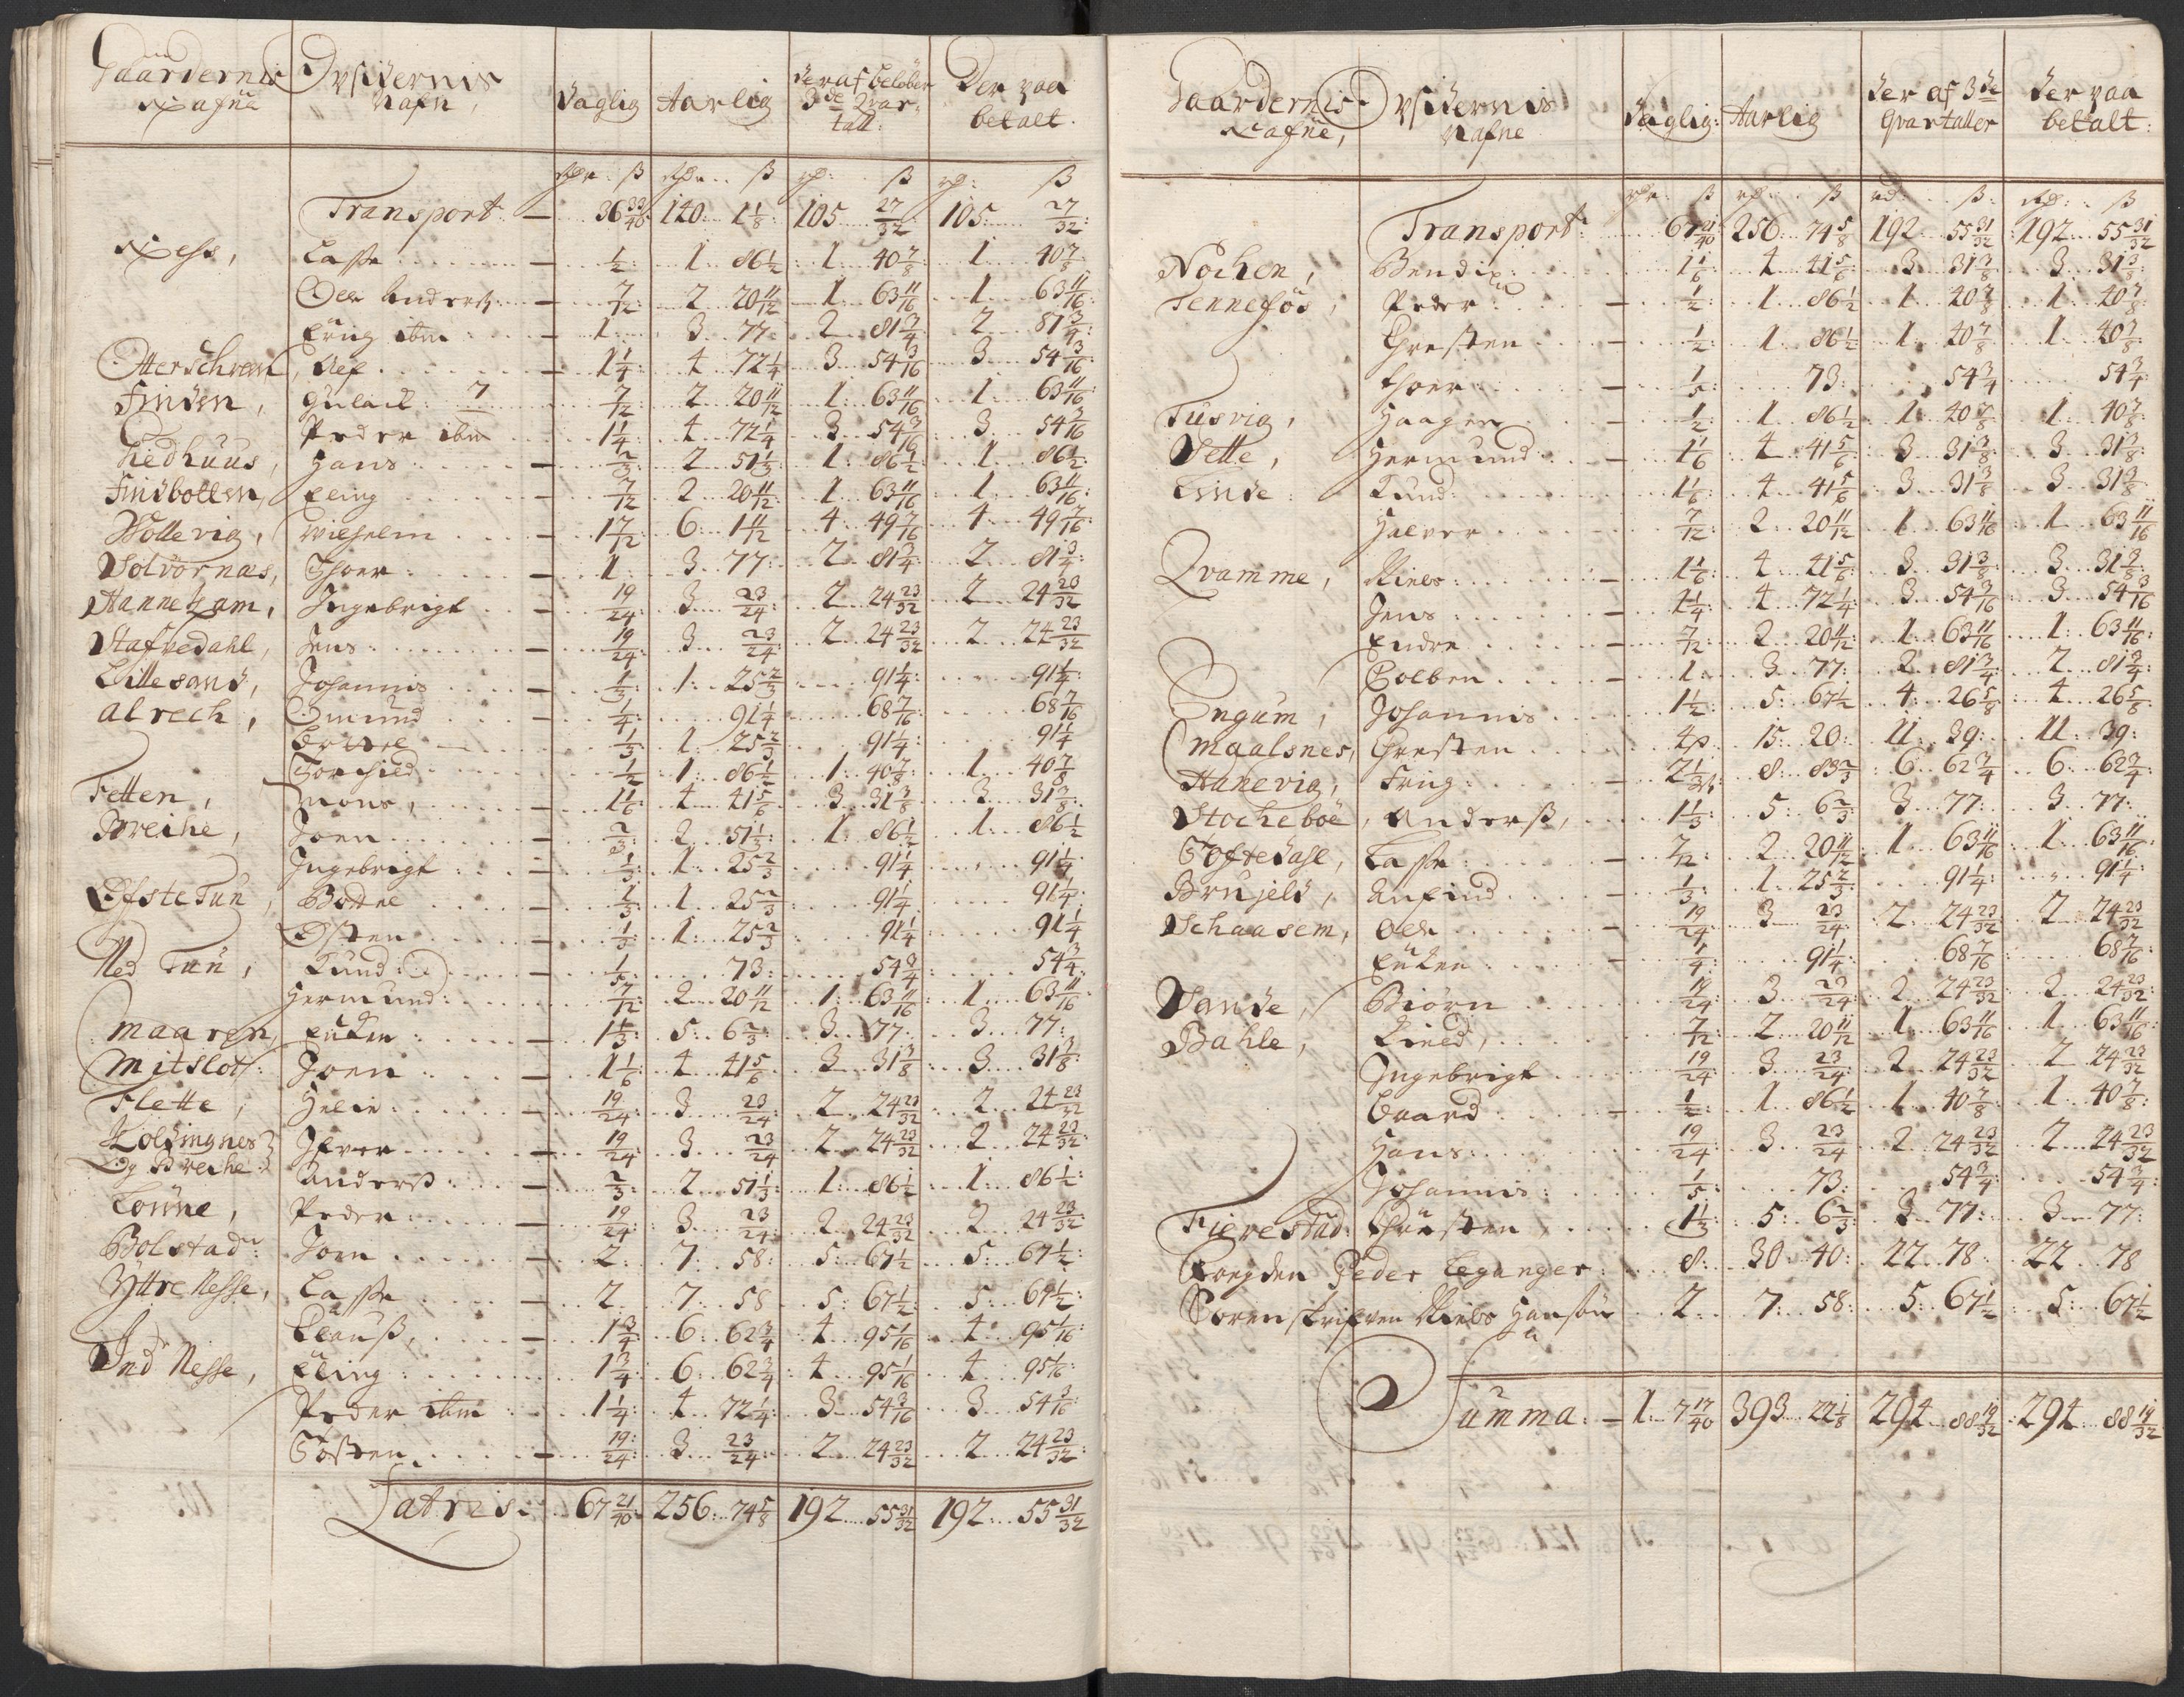 Gaardernis Nafne | Opsidernis Nafn, | Daglig | Aarlig | Deraf beløber 3de Qvartall: | Der paa betalt.
Rdr. ß | Rdr. ß | rd: ß | rd: ß
Transport — 36 33/40: | 140: 1 1/8: | 105 27/32: | 105: 27/32:
Ness, Lasse — 1/2: | 1 86 1/2 | 1 40 7/8: | 1 40 7/8:
Ole Anders: — 7/12: | 2 20 11/12 | 1: 63 11/16 | 1 63 11/16:
Erug ibm — 1 | 3 77: | 2 81 3/4: | 2 81 3/4:
Otterschrem, — 1 1/4: | 4 72 1/4 | 3 54 3/16 | 3 54 3/16:
Finden, Gulach 7 7/12: | 2 20 11/12 | 1: 63 11/16 | 1 63 11/16:
Peder ibm 1 1/4: | 4 72 1/4 | 3 54 3/16 | 3 54 3/16
Hans — 2/3: | 2 51 1/3: | 1: 86 1/2 | 1 86 1/2:
Findbotten, Eling — 7/12 | 2 20 11/12: | 1 63 11/16 | 1: 63 11/16:
Wollevig, Wilhelm — 1 7/12 | 6: 1 11/12 | 4 49 7/16 | 4 49 7/16:
Solvornæs, Thoer — 1: | 3 77: | 2 81 3/4 | 2 81 3/4:
Hannekam, Ingebrigt — 19/24: | 3 23/24: | 2 24 23/32 | 2 24 23/32
Stafvedahl, Jens — 19/24: | 3 23/24: | 2 24 23/32 | 2 24 23/32
Littesand, Johannis — 1/3: | 1: 25 2/3 | 91 1/4: | 91 1/4:
Alrech, Omund — 1/4: | 91 1/4 | 68 7/16: | 68 7/16
1/3: | 1 25 2/3 | 91 1/4: | 91 1/4
Torchild 1/2: | 1: 86 1/2 | 1: 40 7/8 | 1 40 7/8
Fetten, Mons, — 1 1/6: | 4 41 5/6 | 3 31 3/8 | 3 31 3/8:
Breche, Joen — 2/3: | 2 51 1/3: | 1: 86 1/2 | 1: 86 1/2
Ingebrigt 1/3: | 1 25 2/3 | 91 1/4 | 91 1/4:
Øfste Tun, Bottel 1/3: | 1 25 2/3 | 91 1/4 | 91 1/4:
Østen 1/3: | 1: 25 2/3 | 91 1/4 | 91 1/4
Ned Tun, Knud: 1/5: | 73: | 54 3/4 | 54 3/4:
Hermund: 7/12: | 2 20 11/12 | 1: 63 11/16: | 1 63 11/16:
Maaren, — 1 1/3: | 5: 6 2/3: | 3 77 | 3 77:
Mitslot: Joen — 1 1/6 | 4 41 5/6 | 3 31 3/8 | 3 31 3/8:
Flette, Helie — 19/24: | 3 23/24: | 2 24 23/32 | 2 24 23/32
Kolfingnes og Breche: Ifver — 19/24: | 3 23/24 | 2 24 23/32 | 2 24 23/32:
Anders — 2/3: | 2 51 1/3: | 1: 86 1/2 | 1 86 1/2:
Lonne, Peder — 19/24: | 3 23/24: | 2 24 23/32 | 2 24 23/32
Bolstad: Joen — 2: | 7: 58: | 5: 67 1/2 | 5: 67 1/2:
Yttre Nesse, Lasse — 2 | 7: 58 | 5: 67 1/2: | 5: 67 1/2:
Clauß, — 1 3/4: | 6: 62 3/4 | 4 95 1/16 | 4 95 1/16:
Indr Nesse, Eling 1 3/4: | 6: 62 3/4: | 4 95 1/16 | 4 95 1/16:
Peder ibm 1 1/4: | 4 72 1/4: | 3 54 3/16 | 3 54 3/16:
Gosten — 19/24: | 3 23/24: | 2 24 23/32 | 2 24 23/32:
Latris: 67 21/40: | 256: 74 5/8 | 192 55 31/32 | 192: 55 31/32
Gaardernis Nafne, | Opsidernis Nafne | Daglig: | Aarlig | Der af 3de Qvartaller | Der paa betalt:
Transport: 67 21/40 | 256 74 5/8 | 192: 55 31/32 | 192 55 31/32
Nochen, Bendix: 1 1/6: | 4 41 5/6 | 3 31 3/8 | 3 31 3/8:
Tennefos, Peder — 1/2: | 1 86 1/2 | 1 40 7/8 | 1: 40 7/8
Christen — 1/2: | 1 86 1/2 | 1: 40 7/8 | 1 40 7/8:
Thoer — 1/5: | 73: | 54 3/4 | 54 3/4
Tusvig, Haagen — 1/2: | 1 86 1/2 | 1: 40 7/8 | 1: 40 7/8:
Sette, Hermund — 1 1/6 | 4 41 5/6: | 3 31 3/8: | 3 31 3/8:
Linde: Knud: 1 1/6: | 4 41 5/6: | 3 31 3/8 | 3 31 3/8
Halver 7/12: | 2 20 11/12 | 1 63 11/16 | 1 63 11/16
Qvamme, Niels — 1 1/6: | 4 41 5/6: | 3 31 3/8: | 3 31 3/8:
Jens 1 1/4: | 4 72 1/4: | 3 54 3/16 | 3 54 3/16
Endre — 7/12: | 2 20 11/12: | 1: 63 11/16 | 1: 63 11/16:
Colben — 1: | 3 77: | 2 81 3/4: | 2 81 3/4:
Engum, Johannis 1 1/2: | 5: 67 1/2 | 4: 26 5/8 | 4 26 5/8:
Maalsnes, Christen 4ß: | 15: 20: | 11: 39: | 11: 39:
Hanevig, 2 1/3 | 8: 83 2/3 | 6 62 3/4 | 6: 62 3/4:
Stocheboe, Anders, 1 1/3: | 5: 6 2/3: | 3 77: | 3 77:
Lasse — 7/12: | 2 20 11/12 | 1 63 11/16: | 1: 63 11/16:
Anfind 1/3: | 1 25 2/3: | 91 1/4: | 91 1/4:
Schaasem, Ole — 19/24: | 3 23/24: | 2 24 23/32: | 2 24 23/32
1/4: | 91 1/4: | 68 7/16 | 68 7/16:
Sande, Biørn — 19/24: | 3 23/24: | 2 24 23/32 | 2 24 23/32:
Bahle, 7/12: | 2 20 11/12 | 1: 63 11/16 | 1 63 11/16:
Ingebrigt 19/24: | 3 23/24: | 2 24 23/32 | 2 24 23/32
Baard — 1/2: | 1 86 1/2 | 1 40 7/8: | 1 40 7/8:
Hans: 19/24: | 3 23/24 | 2 24 23/32 | 2 24 23/32
Johannis: 1/5: | 73: | 54 3/4: | 54 3/4:
Fierestad: Christen 1 1/3: | 5: 6 2/3: | 3 77: | 3 77:
Fogden Peder Leganger: 8: | 30 40: | 22 78: | 22 78
Sorenskrifven Niels Hanson 2 | 7: 58: | 5: 67 1/2 | 5: 67 1/2
Summa: — 1: 7 17/40 | 393 22 1/8 | 294 88 19/32 | 294 88 19/32